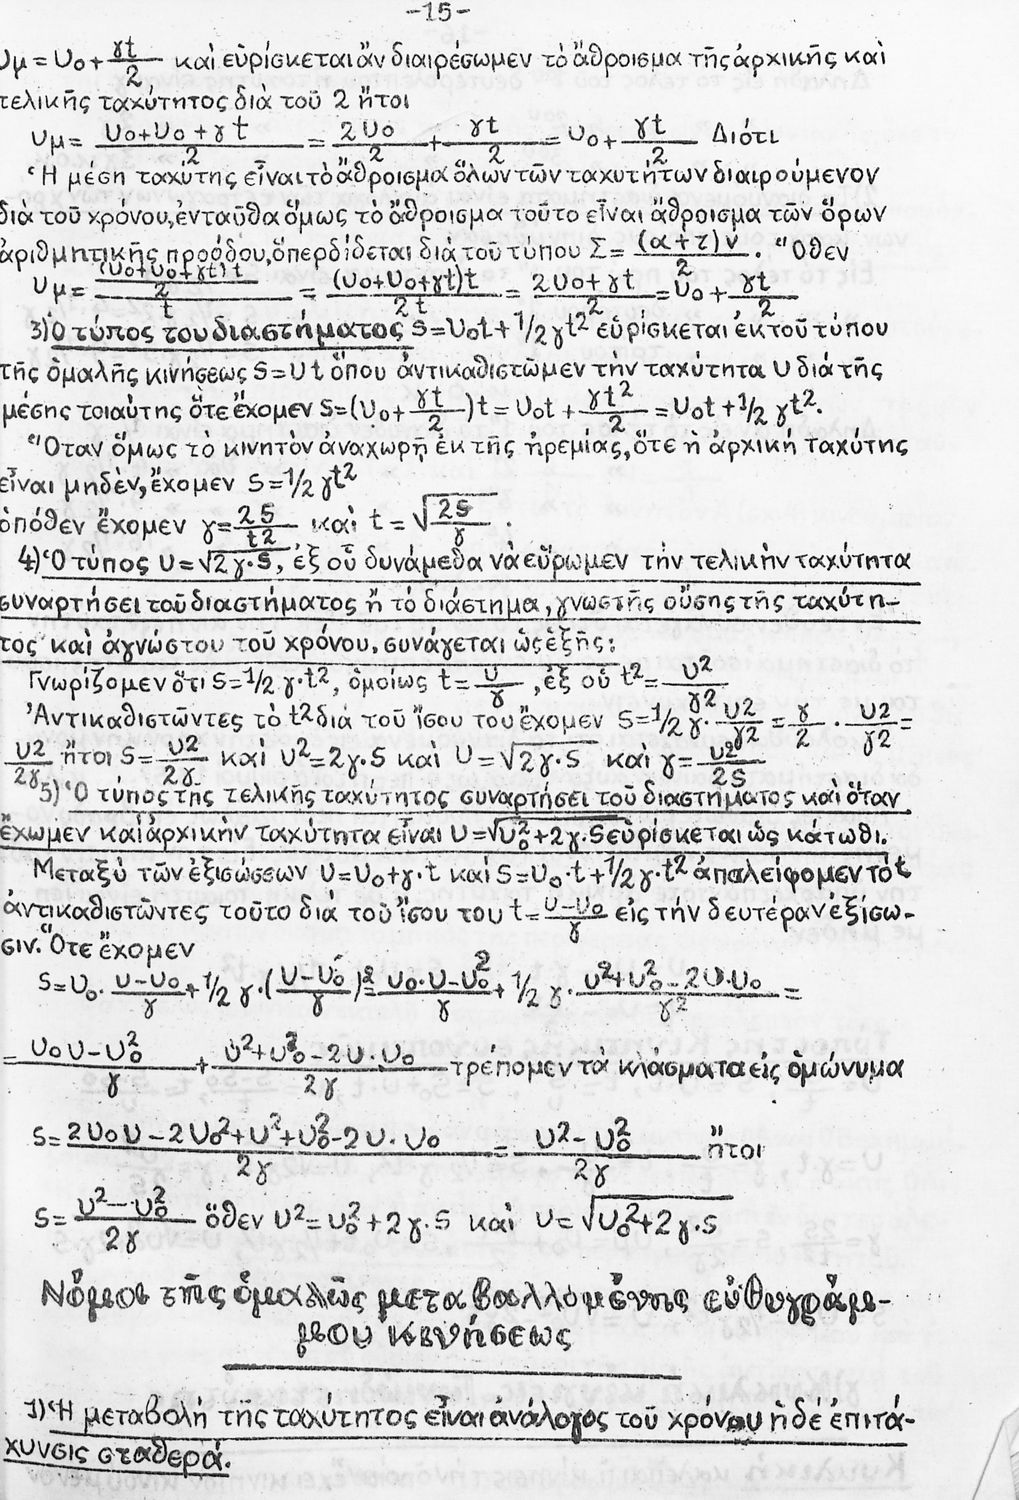 -15-
υμ = υο + γt/2 καὶ εὑρίσκεται ἂν διαιρέσωμεν τὸ ἄθροισμα τῆς ἀρχικῆς καὶ
τελικῆς ταχύτητος διὰ τοῦ 2 ἤτοι
υμ = (υο+υο+γt)/2 = 2υο/2 + γt/2 = υο + γt/2 Διότι
Ἡ μέση ταχύτης εἶναι τὸ ἄθροισμα ὅλων τῶν ταχυτήτων διαιρούμενον
διὰ τοῦ χρόνου, ἐνταῦθα ὅμως τὸ ἄθροισμα τοῦτο εἶναι ἄθροισμα τῶν ὅρων
ἀριθμητικῆς προόδου, ὅπερ δίδεται διὰ τοῦ τύπου Σ = (α+τ)ν/2. Ὅθεν
υμ = ((υο+υο+γt)t/2)/t = (υο+υο+γt)t/2t = (2υο+γt)/2 = υο + γt/2
3) Ὁ τύπος του διαστήματος S=υοt+1/2 γt² εὑρίσκεται ἐκ τοῦ τύπου
τῆς ὁμαλῆς κινήσεως S=υt ὅπου ἀντικαθιστῶμεν τὴν ταχύτητα υ διά τῆς
μέσης τοιαύτης ὅτε ἔχομεν S=(υο+γt/2)t = υοt + γt²/2 = υοt+1/2 γt².
Ὅταν ὅμως τὸ κινητὸν ἀναχωρῇ ἐκ τῆς ἠρεμίας, ὅτε ἡ ἀρχική ταχύτης
εἶναι μηδέν, ἔχομεν S=1/2 γt²
ὁπόθεν ἔχομεν γ=2S/t² καὶ t=√(2S/γ).
4) Ὁ τύπος υ=√2γ·S, ἐξ οὗ δυνάμεθα νὰ εὕρωμεν τήν τελικὴν ταχύτητα
συναρτήσει τοῦ διαστήματος ἢ τὸ διάστημα, γνωστῆς οὔσης τῆς ταχύτη-
τος καὶ ἀγνώστου τοῦ χρόνου, συνάγεται ὡς ἑξῆς:
Γνωρίζομεν ὅτι S=1/2 γ·t², ὁμοίως t=υ/γ, ἐξ οὗ t²=υ²/γ²
Ἀντικαθιστῶντες τὸ t² διά τοῦ ἴσου του ἔχομεν S=1/2 γ·υ²/γ² = γ/2 · υ²/γ² =
υ²/2γ ἤτοι S=υ²/2γ καὶ υ²=2γ·S καὶ υ=√2γ·S καὶ γ=υ²/2S
5) Ὁ τύπος τῆς τελικῆς ταχύτητος συναρτήσει τοῦ διαστήματος καὶ ὅταν
ἔχωμεν καὶ ἀρχικὴν ταχύτητα εἶναι υ=√υο²+2γ·S εὑρίσκεται ὡς κάτωθι.
Μεταξὺ τῶν ἐξισώσεων υ=υο+γ·t καὶ S=υο·t+1/2 γ·t² ἀπαλείφομεν τὸ t
ἀντικαθιστῶντες τοῦτο διά τοῦ ἴσου του t=(υ-υο)/γ εἰς τήν δευτέραν ἐξίσω-
σιν. Ὅτε ἔχομεν
S=υο·(υ-υο)/γ + 1/2 γ·((υ-υο)/γ)² = (υο·υ-υο²)/γ + 1/2 γ·(υ²+υο²-2υ·υο)/γ² =
= (υου-υο²)/γ + (υ²+υο²-2υ·υο)/2γ τρέπομεν τὰ κλάσματα εἰς ὁμώνυμα
S = (2υου-2υο²+υ²+υο²-2υ·υο)/2γ = (υ²-υο²)/2γ ἤτοι
S = (υ²-υο²)/2γ ὅθεν υ²=υο²+2γ·S καὶ υ=√υο²+2γ·S
Νόμοι τῆς ὁμαλῶς μεταβαλλομένης εὐθυγράμ-
μου κινήσεως
1) Ἡ μεταβολή τῆς ταχύτητος εἶναι ἀνάλογος τοῦ χρόνου ἡ δέ ἐπιτά-
χυνσις σταθερά.